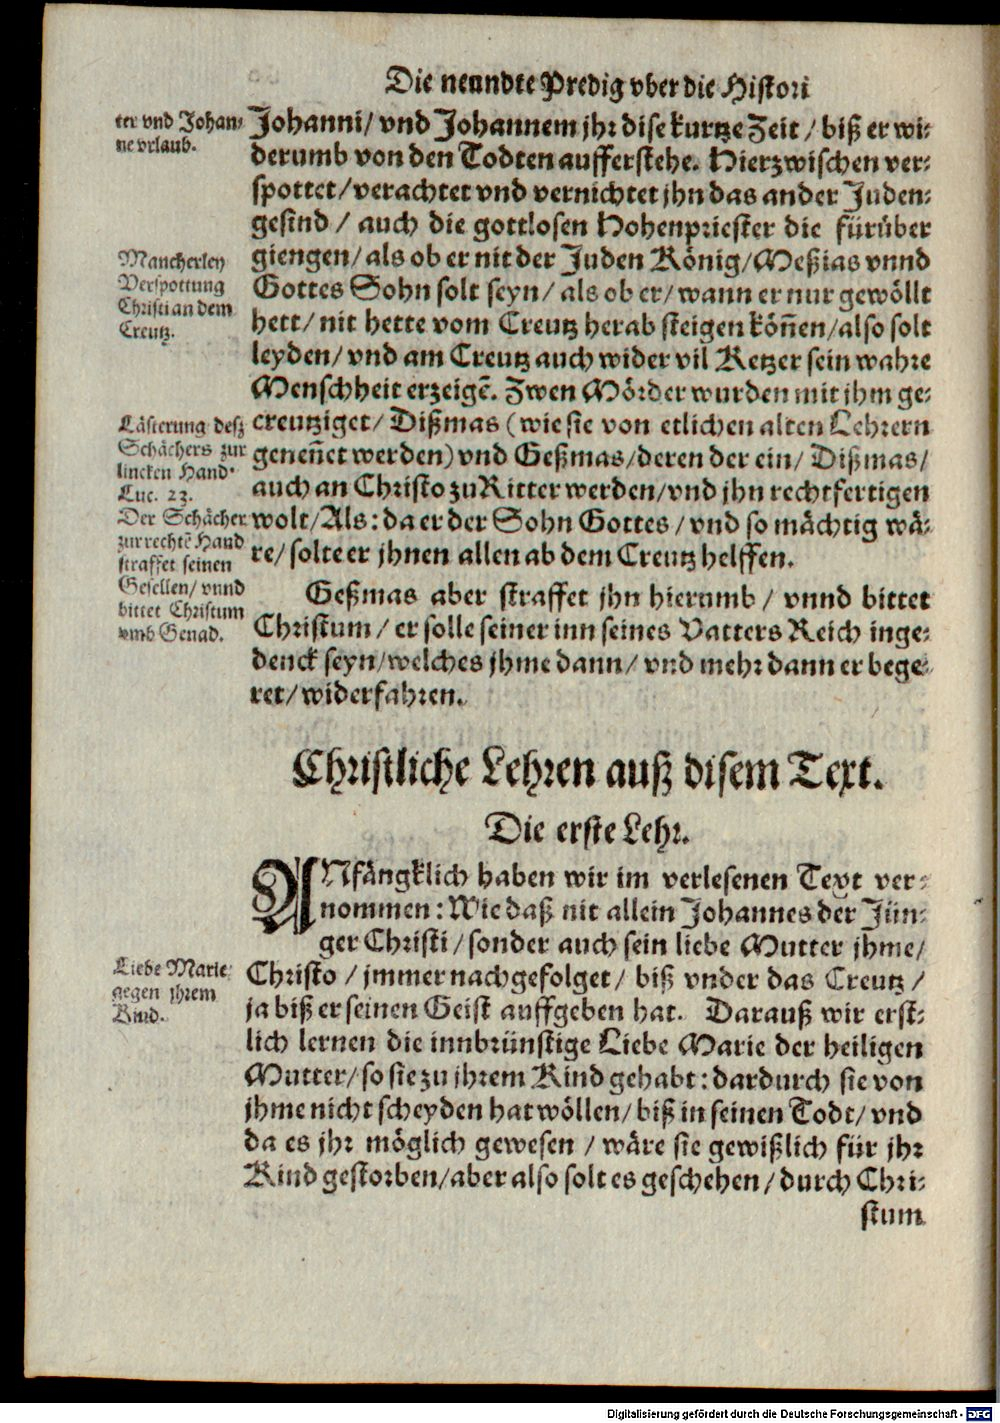 Die neundte Predig vber die Histori
ter vnd Johan-
ne vrlaub.
Johanni/ vnd Johannem jhr dise kurtze Zeit / biß er wi-
derumb von den Todten aufferstehe. Hierzwischen ver-
spottet/verachtet vnd vernichtet jhn das ander Juden-
gesind / auch die gottlosen Hohenpriester die fürüber
giengen/ als ob er nit der Juden König/Meßias vnnd
Gottes Sohn solt seyn/ als ob er/ wann er nur gewöllt
hett/ nit hette vom Creutz herab steigen köñen/also solt
leyden/ vnd am Creutz auch wider vil Ketzer sein wahre
Menschheit erzeigē. Zwen Mörder wurden mit jhm ge-
creutziget/ Dißmas (wie sie von etlichen alten Lehrern
geneñet werden) vnd Geßmas/deren der ein/ Dißmas/
auch an Christo zu Ritter werden/vnd jhn rechtfertigen
wolt/Als: da er der Sohn Gottes / vnd so mächtig wä-
re/ solte er jhnen allen ab dem Creutz helffen.
Mancherley
Verspottung
Christi an dem
Creutz.
Lästerung deß
Schächers zur
lincken Hand.
Luc. 23.
Der Schächer
zur rechtē Hand
straffet seinen
Gesellen/ vnnd
bittet Christum
vmb Genad.
Geßmas aber straffet jhn hierumb / vnnd bittet
Christum / er solle seiner inn seines Vatters Reich inge-
denck seyn/welches jhme dann/ vnd mehr dann er bege-
ret/ widerfahren.
Christliche Lehren auß disem Text.
Die erste Lehr.
ANfängklich haben wir im verlesenen Text ver-
nommen: Wie daß nit allein Johannes der Jün-
ger Christi / sonder auch sein liebe Mutter jhme/
Christo / jmmer nachgefolget/ biß vnder das Creutz /
ja biß er seinen Geist auffgeben hat. Darauß wir erst-
lich lernen die innbrünstige Liebe Marie der heiligen
Mutter/ so sie zu jhrem Kind gehabt: dardurch sie von
jhme nicht scheyden hat wöllen/ biß in seinen Todt/ vnd
da es jhr möglich gewesen / wäre sie gewißlich für jhr
Kind gestorben/aber also solt es geschehen / durch Chri-
stum
Liebe Marie
gegen jhrem
Kind.
Digitalisierung gefördert durch die Deutsche Forschungsgemeinschaft - DFG